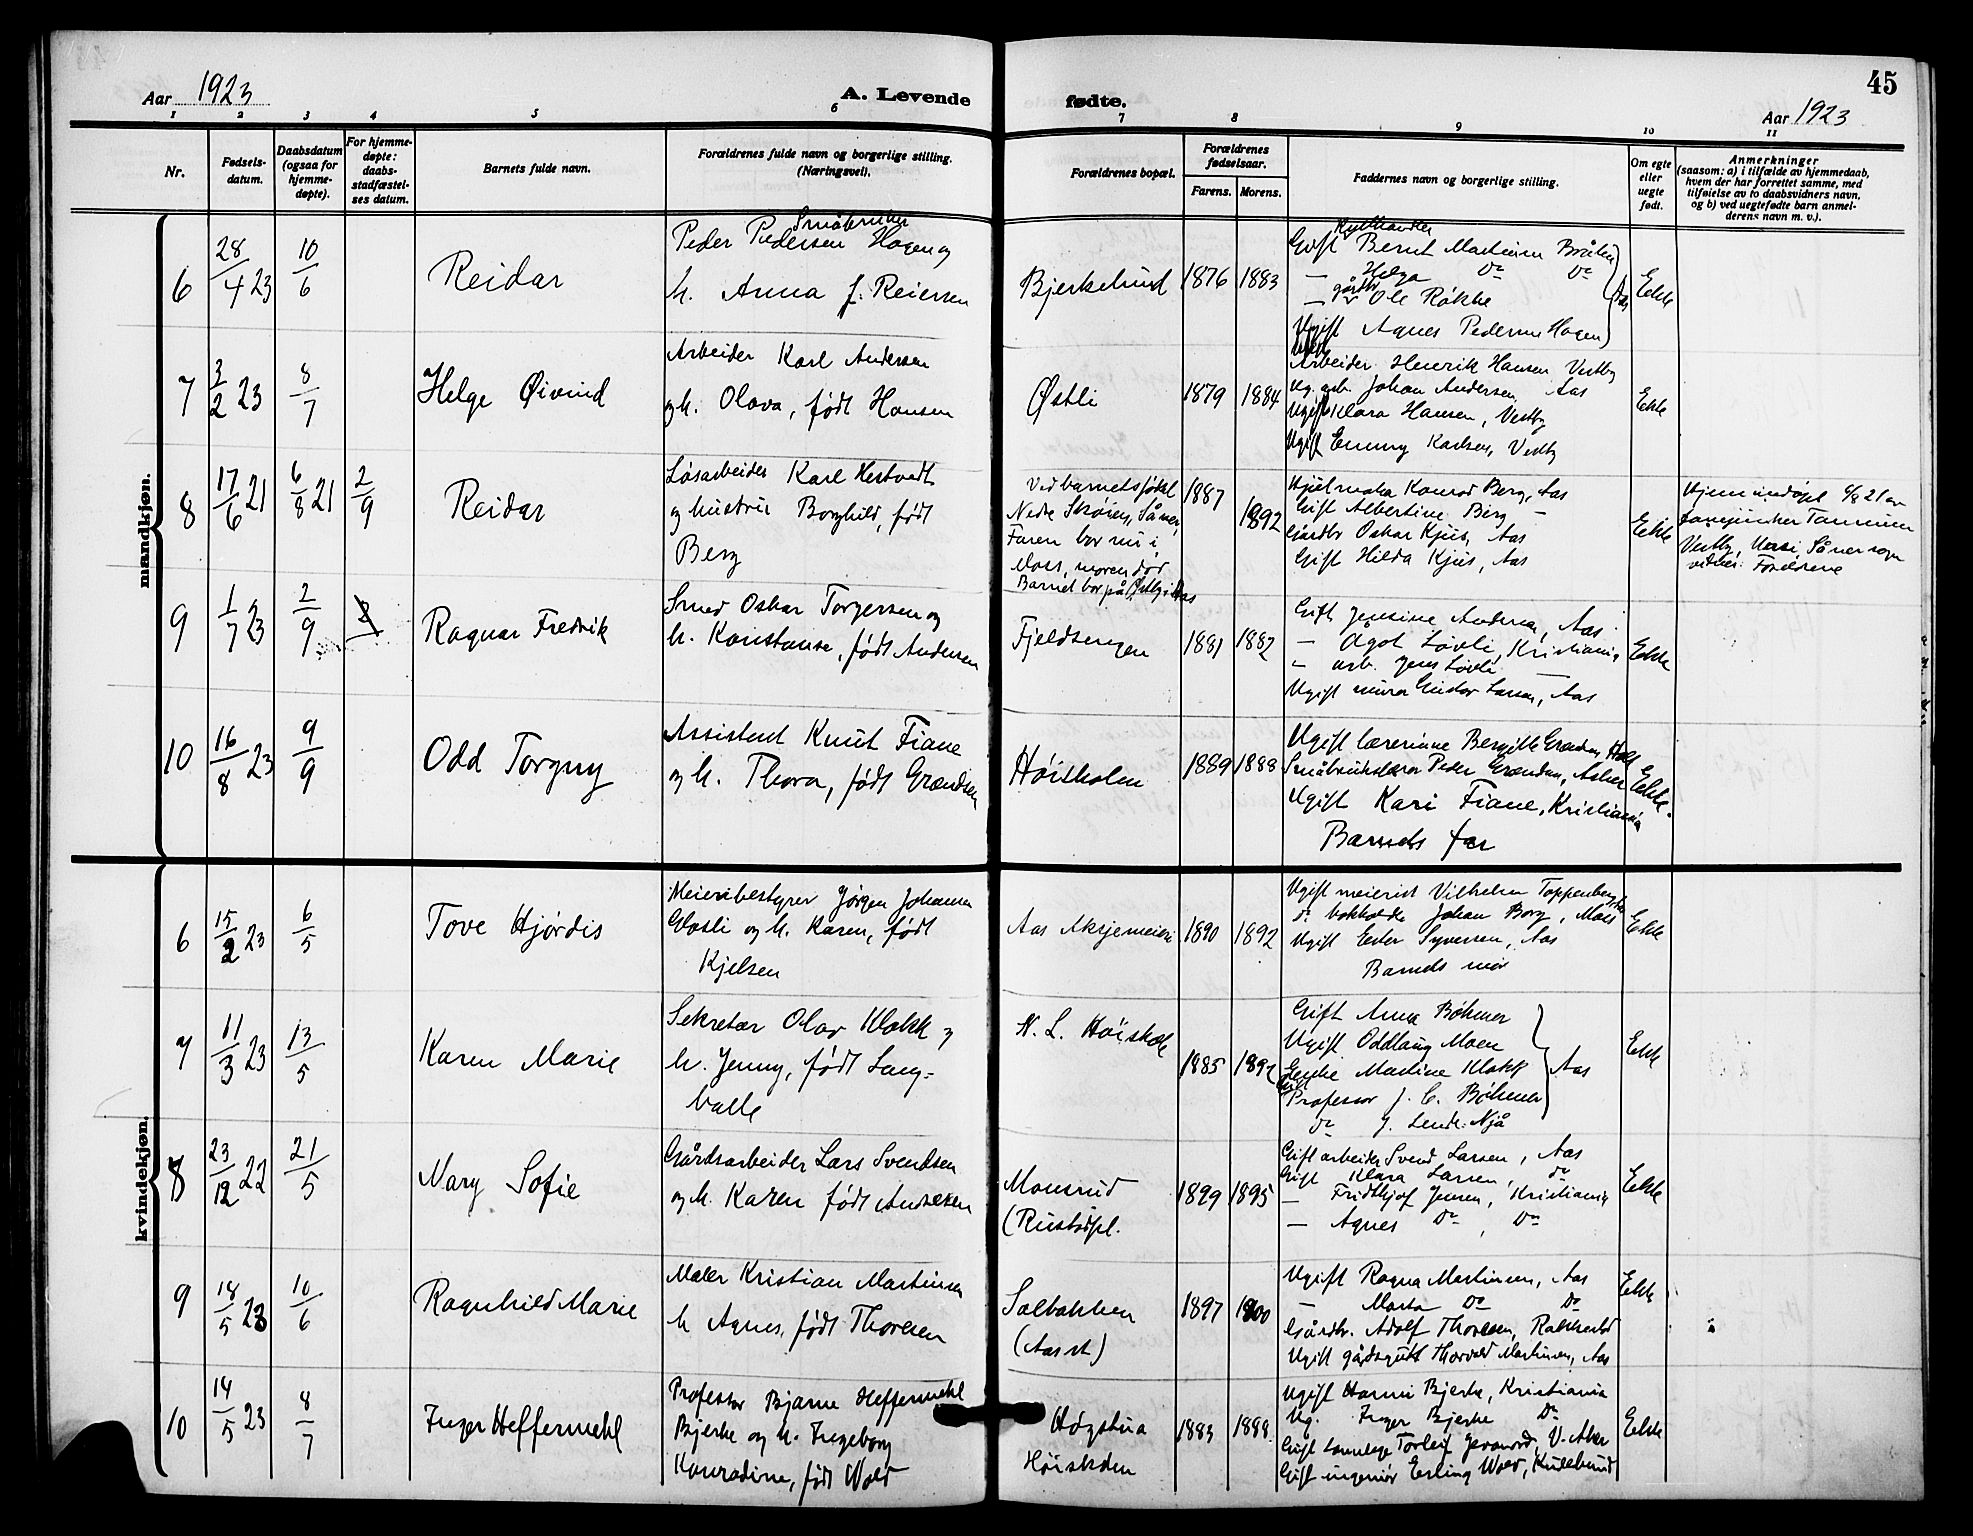 45
Aar 1923
A. Levende fødte.
Aar 1923
1 2 3 4 5 6 7 8 9 10 11
Nr.
Fødsels-
datum.
Daabsdatum
(ogsaa for
hjemme-
døpte).
For hjemme-
døpte:
daabs-
stadfæstel-
ses datum.
Barnets fulde navn.
Forældrenes fulde navn og borgerlige stilling.
(Næringsvei).
Forældrenes bopæl.
Forældrenes
fødselsaar.
Farens. Morens.
Faddernes navn og borgerlige stilling.
Om egte
eller
uegte
født.
Anmerkninger
(saasom: a) i tilfælde av hjemmedaab,
hvem der har forrettet samme, med
tilføielse av to daabsvidners navn,
og b) ved uegtefødte barn anmel-
derens navn m. v.).
mandkjøn.
6
28/4 23
10/6
Reidar
Småbruker
Peder Pedersen Hagen og
h. Anna f. Reiersen
Bjerkelund
1876 1883
Gift Bernt Martinsen Bråten
— Helga Do Do
— gårdbr Ole Røkke
Ugift Agnes Pedersen Hagen
Aas
Ekte
7
3/2 23
8/7
Helge Øivind
Arbeider Karl Andersen
og h. Olava, født Hansen
Østli
1879 1884
Arbeider Henrik Hansen Vestby
Ug. arb. Johan Andersen, Aas
Ugift Klara Hansen, Vestby
Ugift Emmy Karlsen, Vestby
Ekte
8
17/6 21
6/8 21
2/9
Reidar
Løsarbeider Karl Hestvedt
og hustru Borghild, født
Berg
Ved barnets fødsel
Nedre Skøien, Såner,
Faren bor nu i
Moss, moren død
Barnet bor på Østby i Aas
1887 1892
Hjulmaker Konrad Berg, Aas
Gift Albertine Berg —
Gårdbr Oskar Kjus, Aas
Gift Hilda Kjus, Aas
Ekte
Hjemmedøpt 6/8 21 av
Vestby, Såner sogn
Foreldrene
9
1/7 23
2/9
Ragnar Fredrik
Smed Oskar Torgersen og
h. Konstanse, født Andersen
Fjeldsengen
1881 1882
Gift Jensine Andersen, Aas
— Ågot Løvli, Kristiania
— arb. Jens Løvli —
Ugift murer Gunnar Larsen, Aas
Ekte
10
16/8 23
9/9
Odd Torgny
Assistent Knut Fiane
og h. Thora, født Grændsen
Høiskolen
1889 1888
Ugift lærerinne Bergitte Grændsen, Holt
Småbrukslærer Peder Grændsen, Asker
Ugift Kari Fiane, Kristiania
Barnets far
Ekte.
kvindekjøn.
6
15/2 23
6/5
Tove Hjørdis
Meieribestyrer Jørgen Johansen
Glosli og h. Karen, født
Kjelsen
Aas Aksjemeieri
1890 1892
Ugift meierist Vilhelm Toppenberg, Aas
do bokholder Johan Borg, Moss
Ugift Ester Syversen, Aas
Barnets mor
Ekte
7
11/3 23
13/5
Karen Marie
Sekretær Olav Klokk og
h. Jenny, født Lang-
balle
N. L. Høiskole
1885 1892
Gift Anna Bøhmer
Ugift Oddlaug Moen
Enke Martine Klokk
Gift Professor J. C. Bøhmer
do J. Lende-Njå
Aas
Ekte
8
23/12 22
21/5
Mary Sofie
Gårdsarbeider Lars Svendsen
og h. Karen født Andersen
Monsrud
(Rustadpl.
1899 1895
Gift arbeider Svend Larsen, Aas
Gift Klara Larsen, do
— Fridthjof Jensen, Kristiania
— Agnes Do, Do
Ekte
9
18/5 23
10/6
Ragnhild Marie
Maler Kristian Martinsen
h Agnes, født Thoresen
Solbakken
(Aas st)
1897 1900
Ugift Ragna Martinsen, Aas
— Marta Do Do
Gårdbr. Adolf Thoresen, Rakkestad
Ugift gårdsgutt Thorvald Martinsen, Aas
Ekte
10
14/5 23
8/7
Inger Heffermehl
Professor Bjarne Heffermehl
Bjerke og h. Ingeborg
Konradine, født Wold
Høgstua
Høiskolen
1883 1888
Ugift Hanni Bjerke, Kristiania
Ug. Inger Bjerke Do
Gift Torleif V. Aker
Gift ingeniør Erling Wold,
Ekte